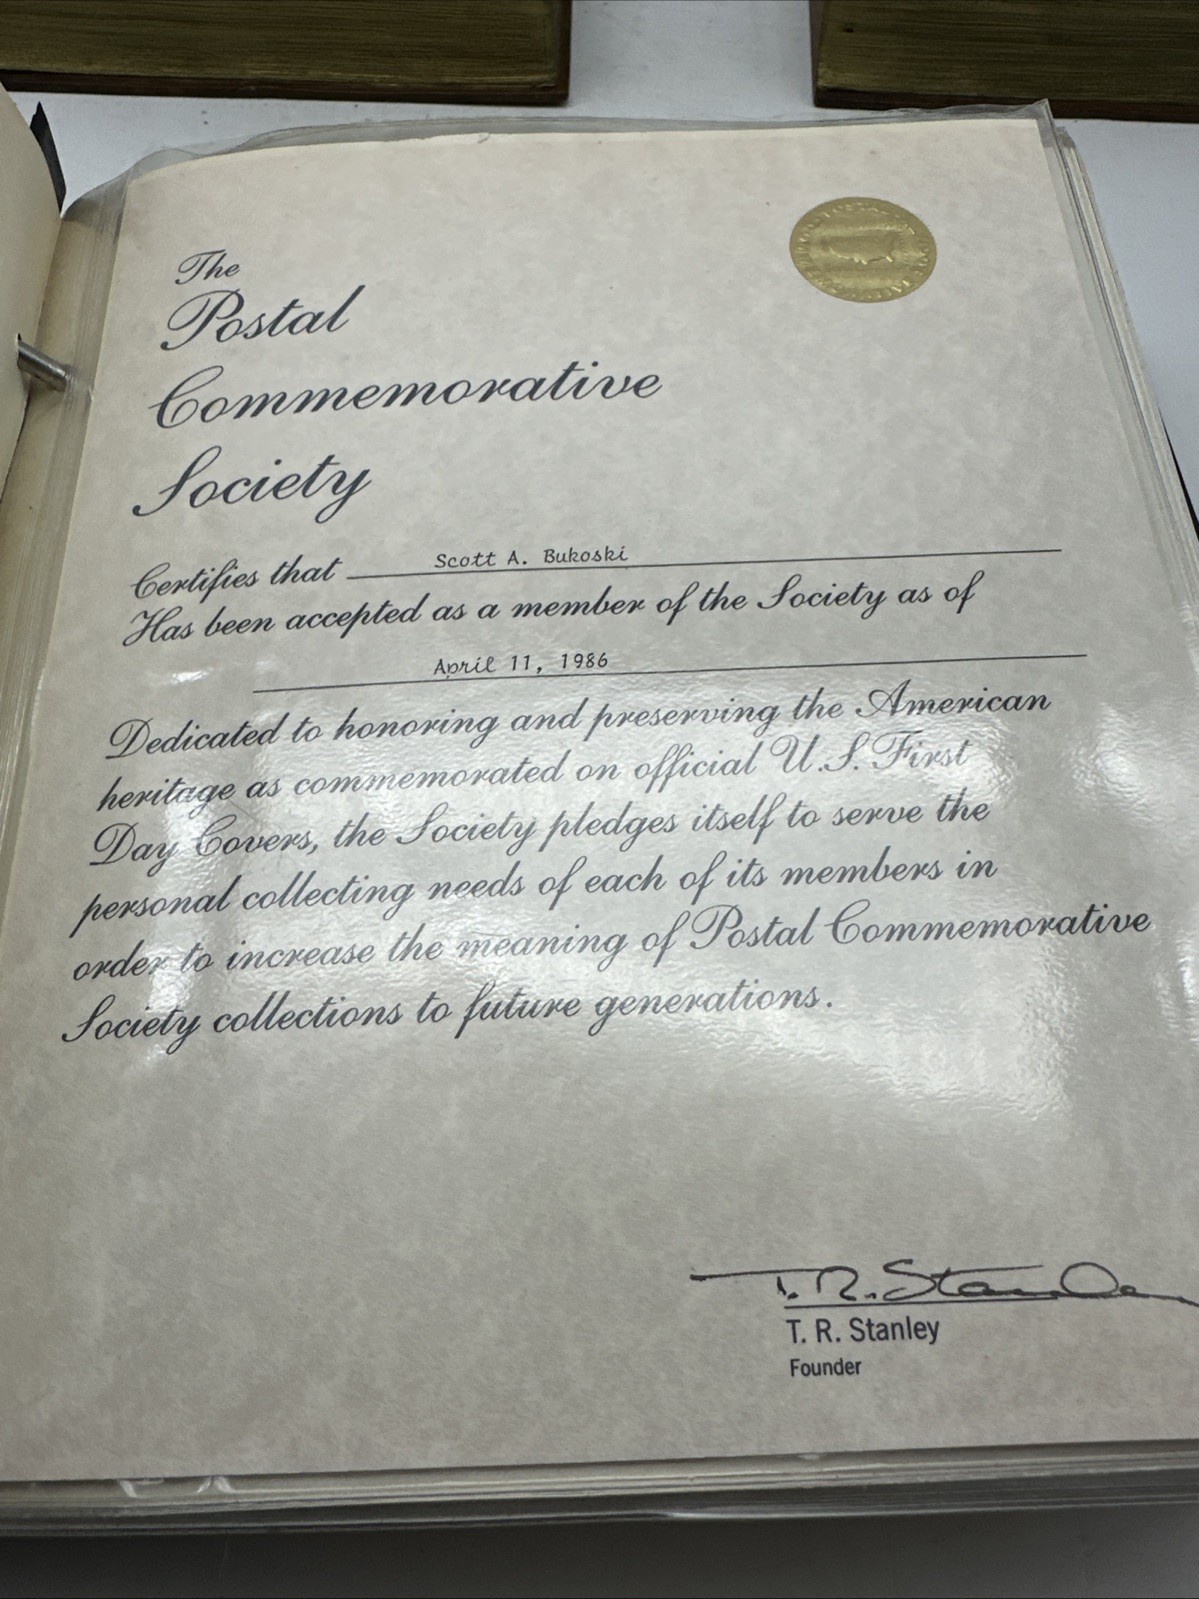 The
Postal
Commemorative
Society
Certifies that Scott A. Bukoski
Has been accepted as a member of the Society as of
April 11, 1986
Dedicated to honoring and preserving the American
heritage as commemorated on official U.S. First
Day Covers, the Society pledges itself to serve the
personal collecting needs of each of its members in
order to increase the meaning of Postal Commemorative
Society collections to future generations.
T. R. Stanley
T. R. Stanley
Founder